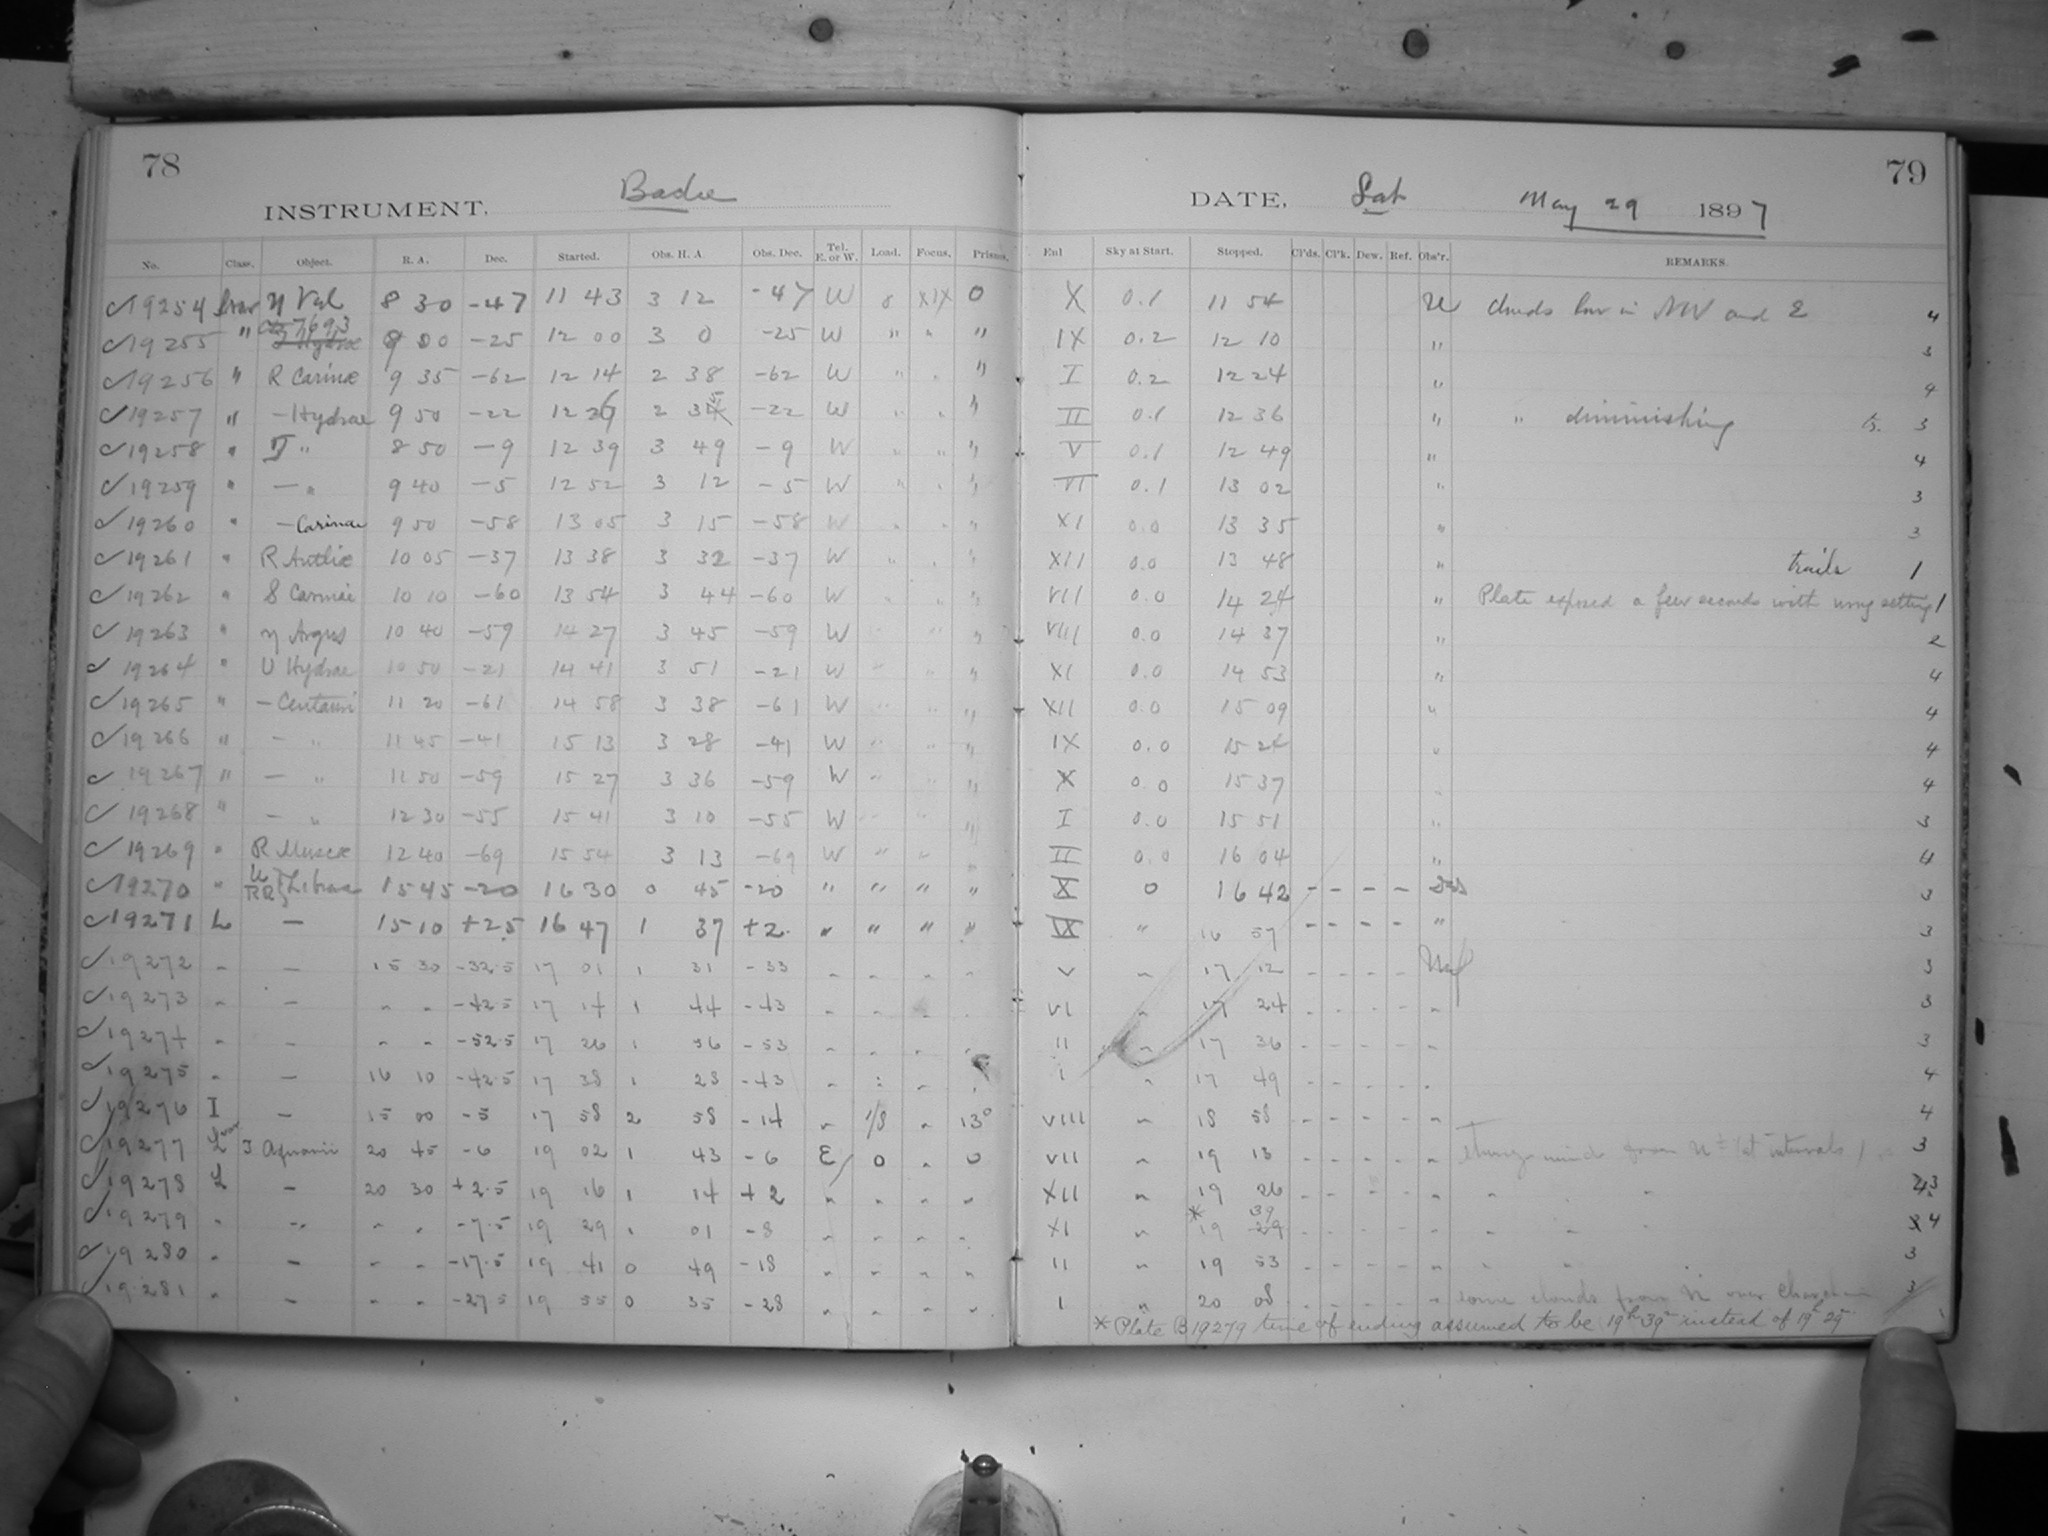 78
INSTRUMENT. Bache
No. Class. Object. R. A. Dec. Started. Obs. H. A. Obs. Dec. Tel. E. or W. Load. Focus. Prisms.
19254 η Vel 8 30 -47 11 43 3 12 -47 W 8 XIX 0
19255 " 7693 9 00 -25 12 00 3 0 -25 W " " "
19256 " R Carinæ 9 35 -62 12 14 2 38 -62 W " " "
19257 " - Hydrae 9 50 -22 12 26 2 35 -22 W " " "
19258 " T " 8 50 -9 12 39 3 49 -9 W " " "
19259 " - " 9 40 -5 12 52 3 12 -5 W " " "
19260 " - Carinae 9 50 -58 13 05 3 15 -58 W " " "
19261 " R Antliæ 10 05 -37 13 38 3 32 -37 W " " "
19262 " S Carinae 10 10 -60 13 54 3 44 -60 W " " "
19263 " η Argus 10 40 -59 14 27 3 45 -59 W " " "
19264 " U Hydrae 10 50 -21 14 41 3 51 -21 W " " "
19265 " - Centauri 11 20 -61 14 58 3 38 -61 W " " "
19266 " - " 11 45 -41 15 13 3 28 -41 W " " "
19267 " - " 11 50 -59 15 27 3 36 -59 W " " "
19268 " - " 12 30 -55 15 41 3 10 -55 W " "
19269 " R Muscæ 12 40 -69 15 54 3 13 -69 W " " "
19270 " U RR } Librae 15 45 -20 16 30 0 45 -20 " " " "
19271 L - 15 10 +2.5 16 47 1 37 +2 " " " "
19272 " - 15 30 -32.5 17 01 1 31 -33 " " " "
19273 " - " " -42.5 17 14 1 44 -43 " " "
19274 " - " " -52.5 17 26 1 56 -53 " " " "
19275 " - 16 10 -42.5 17 38 1 28 -43 " : " "
19276 I - 15 00 -5 17 58 2 58 -14 " 1/8 " 13°
19277 T Aquarii 20 45 -6 19 02 1 43 -6 E 0 " 0
19278 L - 20 30 +2.5 19 16 1 14 +2 " " " "
19279 " - " " -7.5 19 29 1 01 -8 " " " "
19280 " - " " -17.5 19 41 0 49 -18 " " " "
19281 " - " " -27.5 19 55 0 35 -28 " " " "
79
DATE. Sat May 29 1897
Enl Sky at Start. Stopped. Cl'ds. Cl'k. Dew. Ref. Obs'r. REMARKS.
X 0.1 11 54 clouds low in NW and E 4
IX 0.2 12 10 " 3
I 0.2 12 24 " 4
II 0.1 12 36 " " diminishing 3
V 0.1 12 49 " 4
VI 0.1 13 02 " 3
XI 0.0 13 35 " 3
XII 0.0 13 48 " trails 1
VII 0.0 14 24 " Plate exposed a few seconds with wrong setting 1
VIII 0.0 14 37 " 2
XI 0.0 14 53 " 4
XII 0.0 15 09 " 4
IX 0.0 15 24 " 4
X 0.0 15 37 " 4
I 0.0 15 51 " 3
II 0.0 16 04 " 4
X 0 16 42 - - - - 3
IX " 16 57 - - - - " 3
V " 17 12 - - - - 3
VI 17 24 - - - - " 3
II " 17 36 - - - - " 3
I " 17 49 - - - - " 4
VIII " 18 58 - - - - " 4
VII " 19 13 - - - - " wind from at intervals 3
XII " 19 26 - - - - " " " " 3
XI " * 19 29 39 - - - - " " " 4
II " 19 53 - - - - " " " 3
I " 20 08 - - - - " some clouds from N over 3
* Plate B19279 time of ending assumed to be 19h 39m instead of 19h 29m